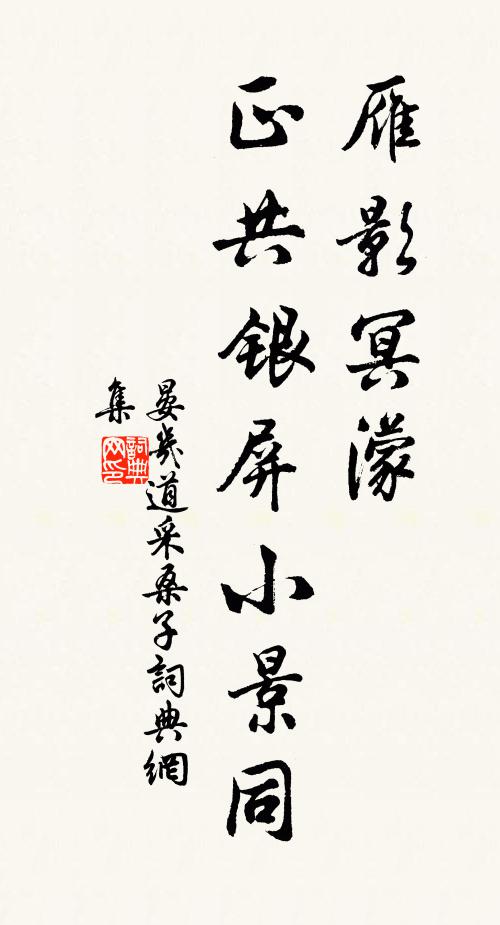 雁影冥濛
正共銀屏小景同
晏幾道采桑子詞典網
集
詞典网印